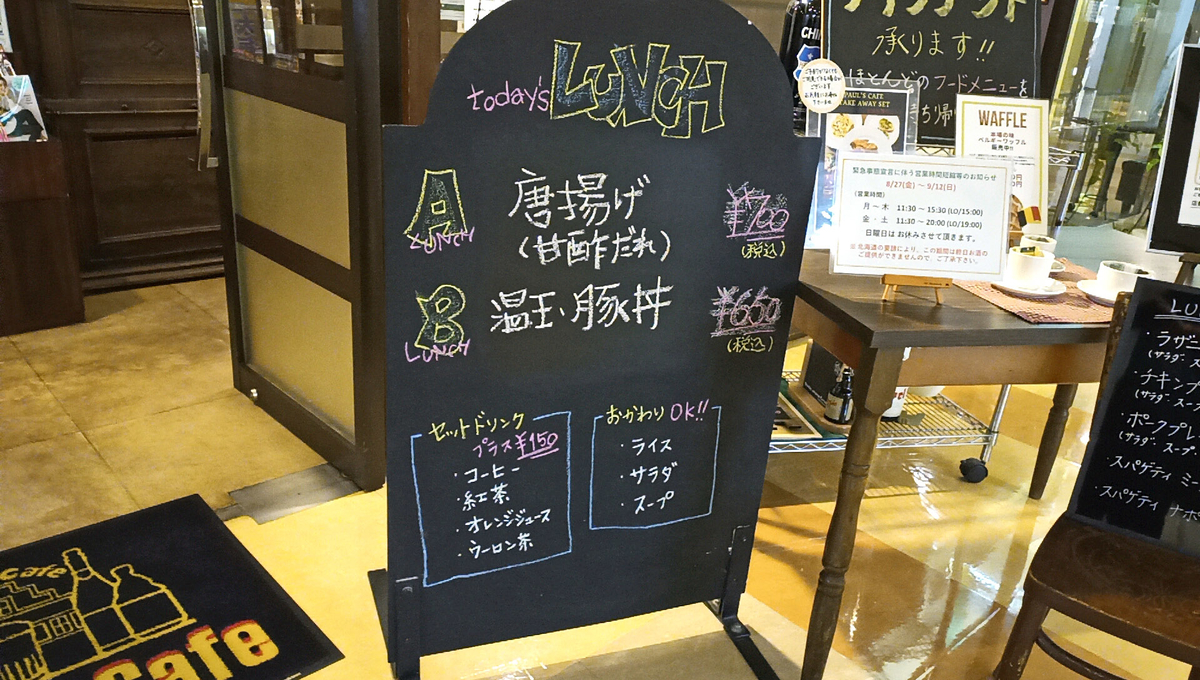 today's LUNCH
A LUNCH
唐揚げ
(甘酢だれ)
¥700
(税込)
B LUNCH
温玉・豚丼
¥650
(税込)
セットドリンク
プラス¥150
・コーヒー
・紅茶
・オレンジジュース
・ウーロン茶
おかわりOK!!
・ライス
・サラダ
・スープ
承ります!!
ほとんどのフードメニューを
PAUL'S CAFE
TAKE AWAY SET
WAFFLE
本場の味
ベルギーワッフル
販売中!!
緊急事態宣言に伴う営業時間短縮等のお知らせ
8/27(金)~9/12(日)
(営業時間)
月~木 11:30~15:30(LO/15:00)
金・土 11:30~20:00(LO/19:00)
日曜日はお休みさせて頂きます。
※北海道の要請により、この期間は終日お酒の
ご提供ができませんので、ご了承下さい。
LU
・ラザニ
(サラダ・ス
・チキンプ
(サラダ・スー
・ポークプレ
(サラダ・スープ
・スパゲティ ミー
・スパゲティ ナポ
cafe
Cafe